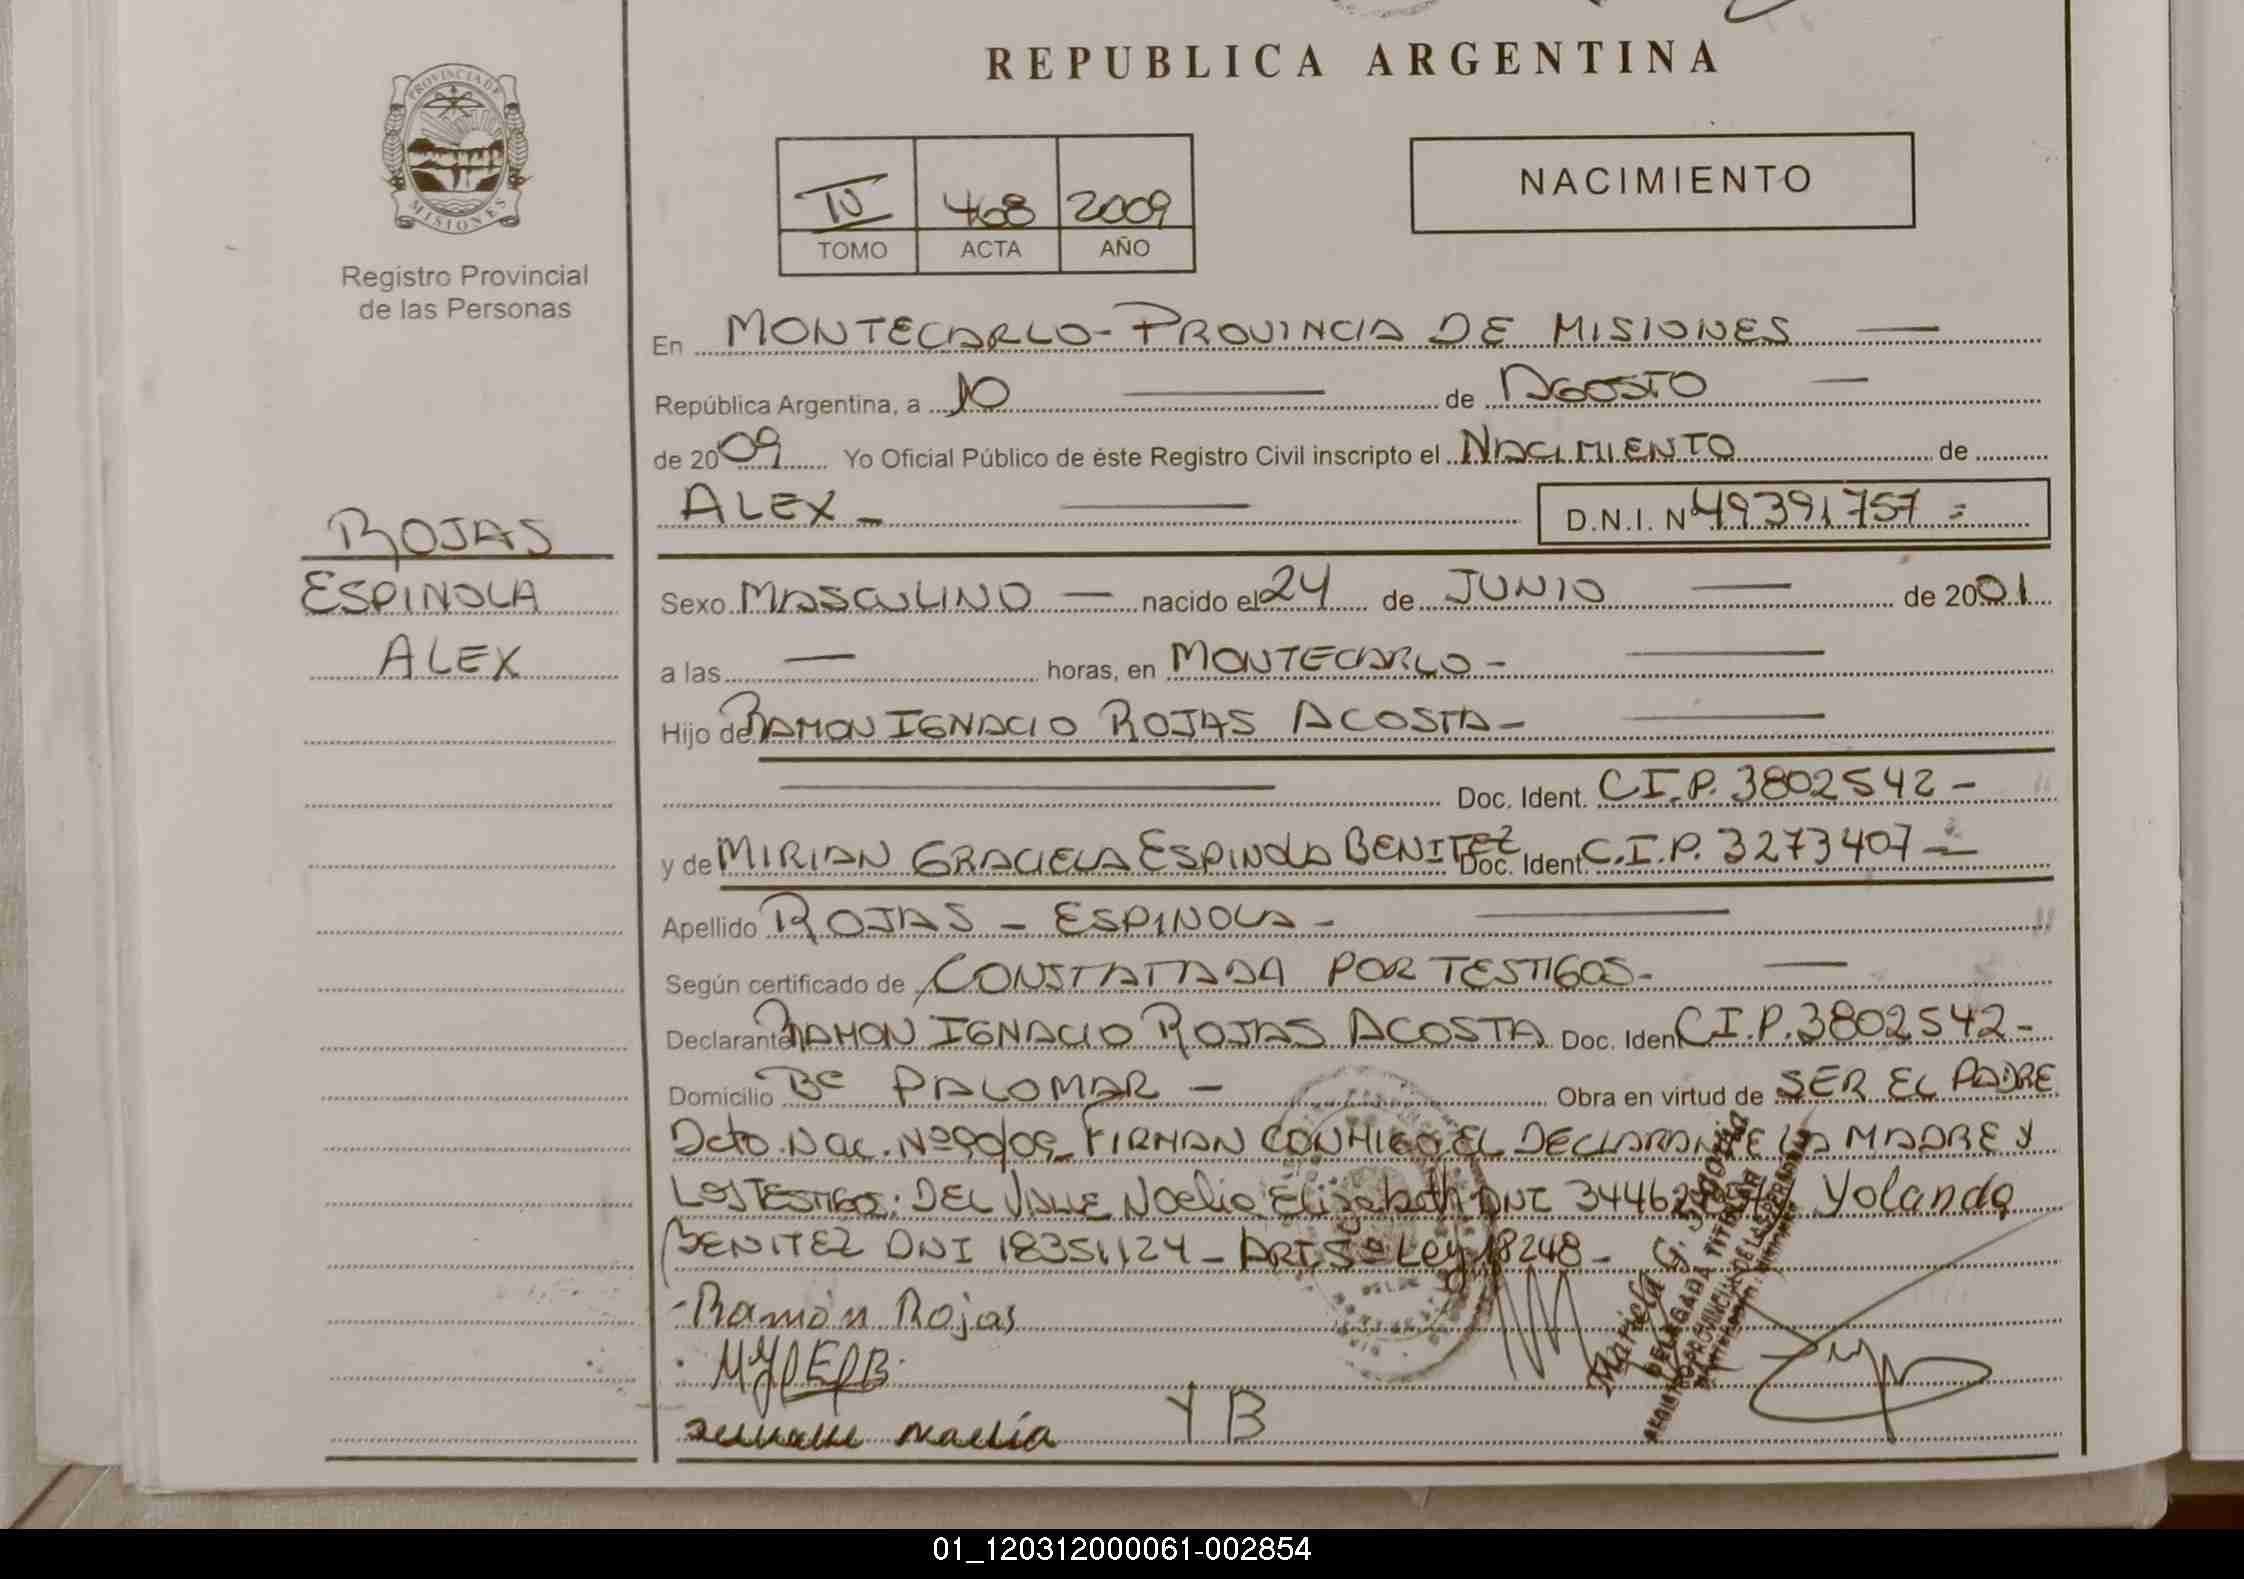 REPUBLICA ARGENTINA
PROVINCIA DE
MISIONES
Registro Provincial
de las Personas
IV 468 2009
TOMO ACTA AÑO
NACIMIENTO
En MONTECARLO - PROVINCIA DE MISIONES
República Argentina, a 10 de AGOSTO
de 2009 Yo Oficial Público de éste Registro Civil inscripto el NACIMIENTO de
ALEX - D.N.I. Nº 49391757 =
ROJAS
ESPINOLA
ALEX
Sexo MASCULINO nacido el 24 de JUNIO de 2001
a las — horas, en MONTECARLO -
Hijo de RAMON IGNACIO ROJAS ACOSTA -
Doc. Ident. C.I.P. 3802542 -
y de MIRIAN GRACIELA ESPINOLA BENITEZ Doc. Ident. C.I.P. 3273407 -
Apellido ROJAS - ESPINOLA -
Según certificado de CONSTATADA POR TESTIGOS -
Declarante RAMON IGNACIO ROJAS ACOSTA Doc. Ident C.I.P. 3802542 -
Domicilio Bº PALOMAR - Obra en virtud de SER EL PADRE
Dcto. Nac. Nº 90/09 - FIRMAN CONMIGO EL DECLARANTE LA MADRE Y
LOS TESTIGOS: DEL VALLE Noelia Elizabeth DNI Yolanda
BENITEZ DNI 18351124 - ART 5º Ley 18248 -
Ramón Rojas
Mariela G.
DELEGADA TITULAR
REGISTRO PROVINCIAL DE LAS PERSONAS
Y B
01_120312000061-002854